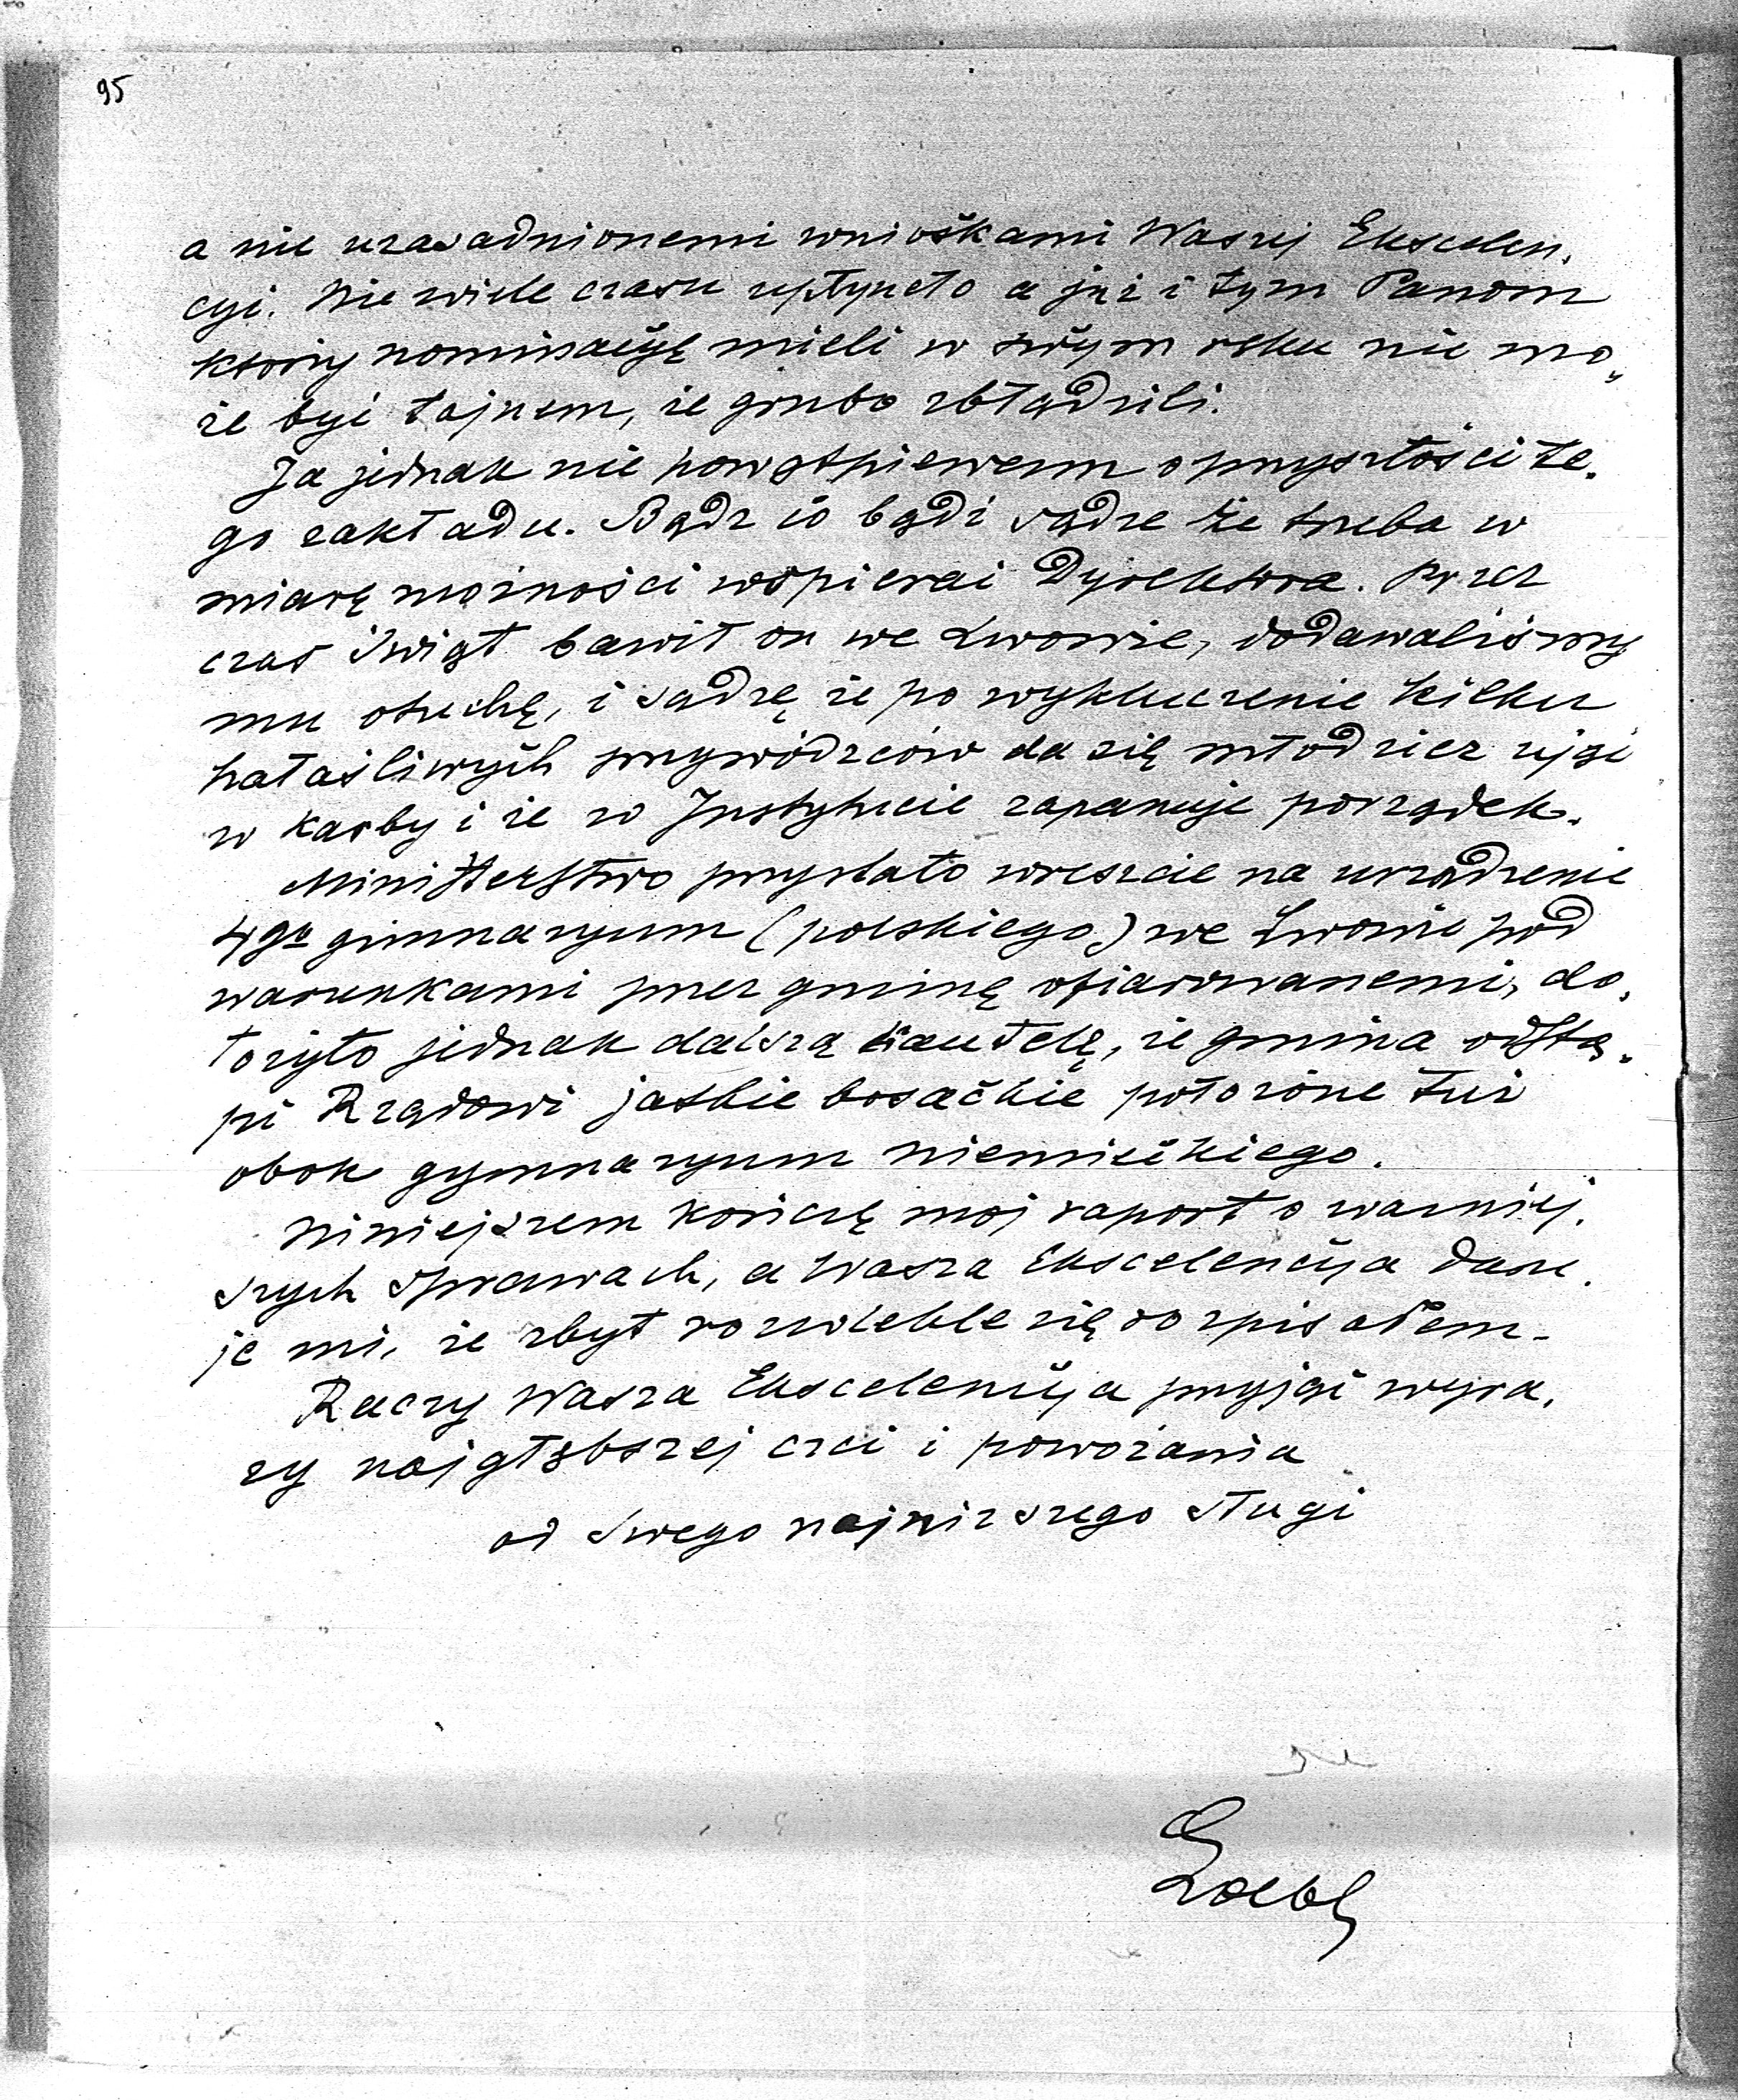 95
a nie uzasadnionemi wnioskami Waszej Ekscelen,
cyi. Nie wiele czasu upłynęło a już i tym Panom
którzy nominacyę mieli w swym ręku nie mo,
że być tajnem, że grubo zbłądzili.
Ja jednak nie powątpiewam o przyszłości te,
go zakładu. Bądz co bądź sądze że trzeba w
miarę możności wspierać Dyrektora. Przez
czas świąt bawił on we Lwowie, dodawaliśmy
mu otuchę, i sądzę że po wykluczenie kilku
hałaśliwych przywódzców da się młodzież ująć
w karby i że w Instytucie zapanuje porządek.
Ministerstwo przystało wreszcie na urządzenie
4go gimnazyum (polskiego) we Lwowie pod
warunkami przez gminę ofiarowanemi, do,
łożyło jednak dalszą kautelę, że gmina odstą,
pi Rządowi jatkie bosackie położone tuż
obok gymnazyum niemieckiego.
Niniejszem kończę moj raport o ważniej,
szych sprawach, a Wasza Ekscelencyja daru,
je mi, że zbyt rozwlekle się rozpisałem.
Raczy Wasza Ekscelencyja przyjąć wyra,
zy najgłębszej czci i poważania
od Swego najniższego sługi
Loebl